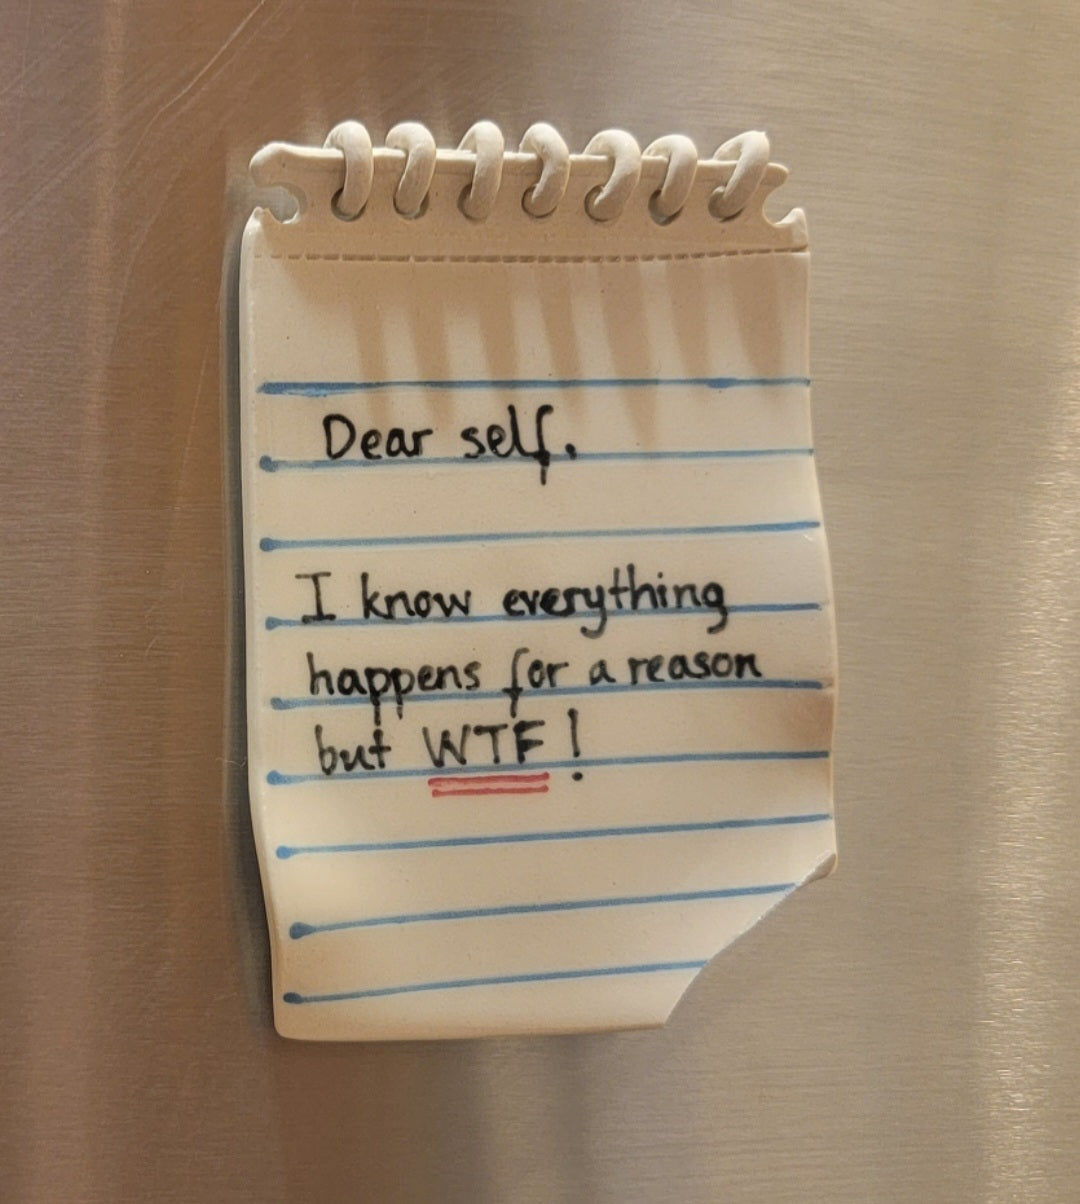 Dear self.
I know everything
happens for a reason
but WTF!